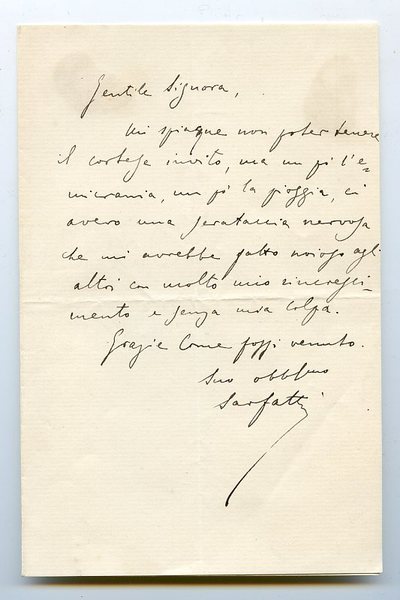 Gentile Signora,
Mi spiacque non poter tenere
il cortese invito, ma un pò l'e-
micrania, un pò la pioggia, ci
avevo una serataccia nervosa
che mi avrebbe fatto noioso agl-
altri con molto mio rincresci-
mento e senza mia colpa.
Grazie come fossi venuto.
Suo obblmo
Sarfatti